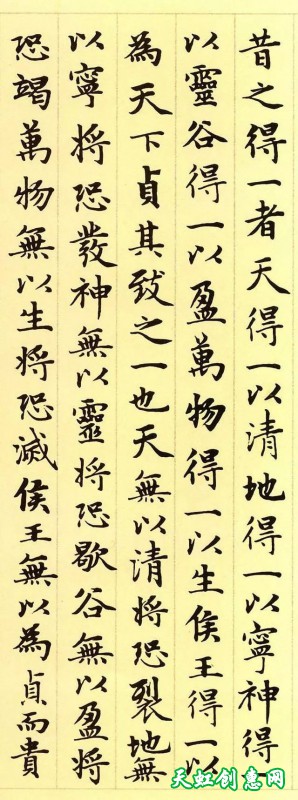 昔之得一者天得一以清地得一以寧神得一
以靈谷得一以盈萬物得一以生侯王得一以
為天下貞其致之一也天無以清將恐裂地無
以寧將恐發神無以靈將恐歇谷無以盈將
恐竭萬物無以生將恐滅侯王無以為貞而貴
天虹创意网